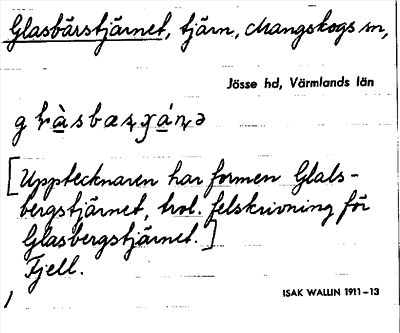 Glasbärstjärnet, tjärn, Mangskogs sn,
Jösse hd, Värmlands län
[Upptecknaren har formen Glals-
bergstjärnet, trol. felskrivning för
Glasbergstjärnet.]
Fjell.
ISAK WALLIN 1911-13